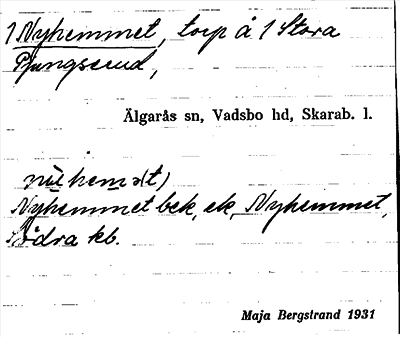 1 Nyhemmet, torp å 1 Stora
Pjungserud,
Älgarås sn, Vadsbo hd, Skarab. l.
Nyhemmet bek, ek, Nyhemmet,
Södra kb.
Maja Bergstrand 1931